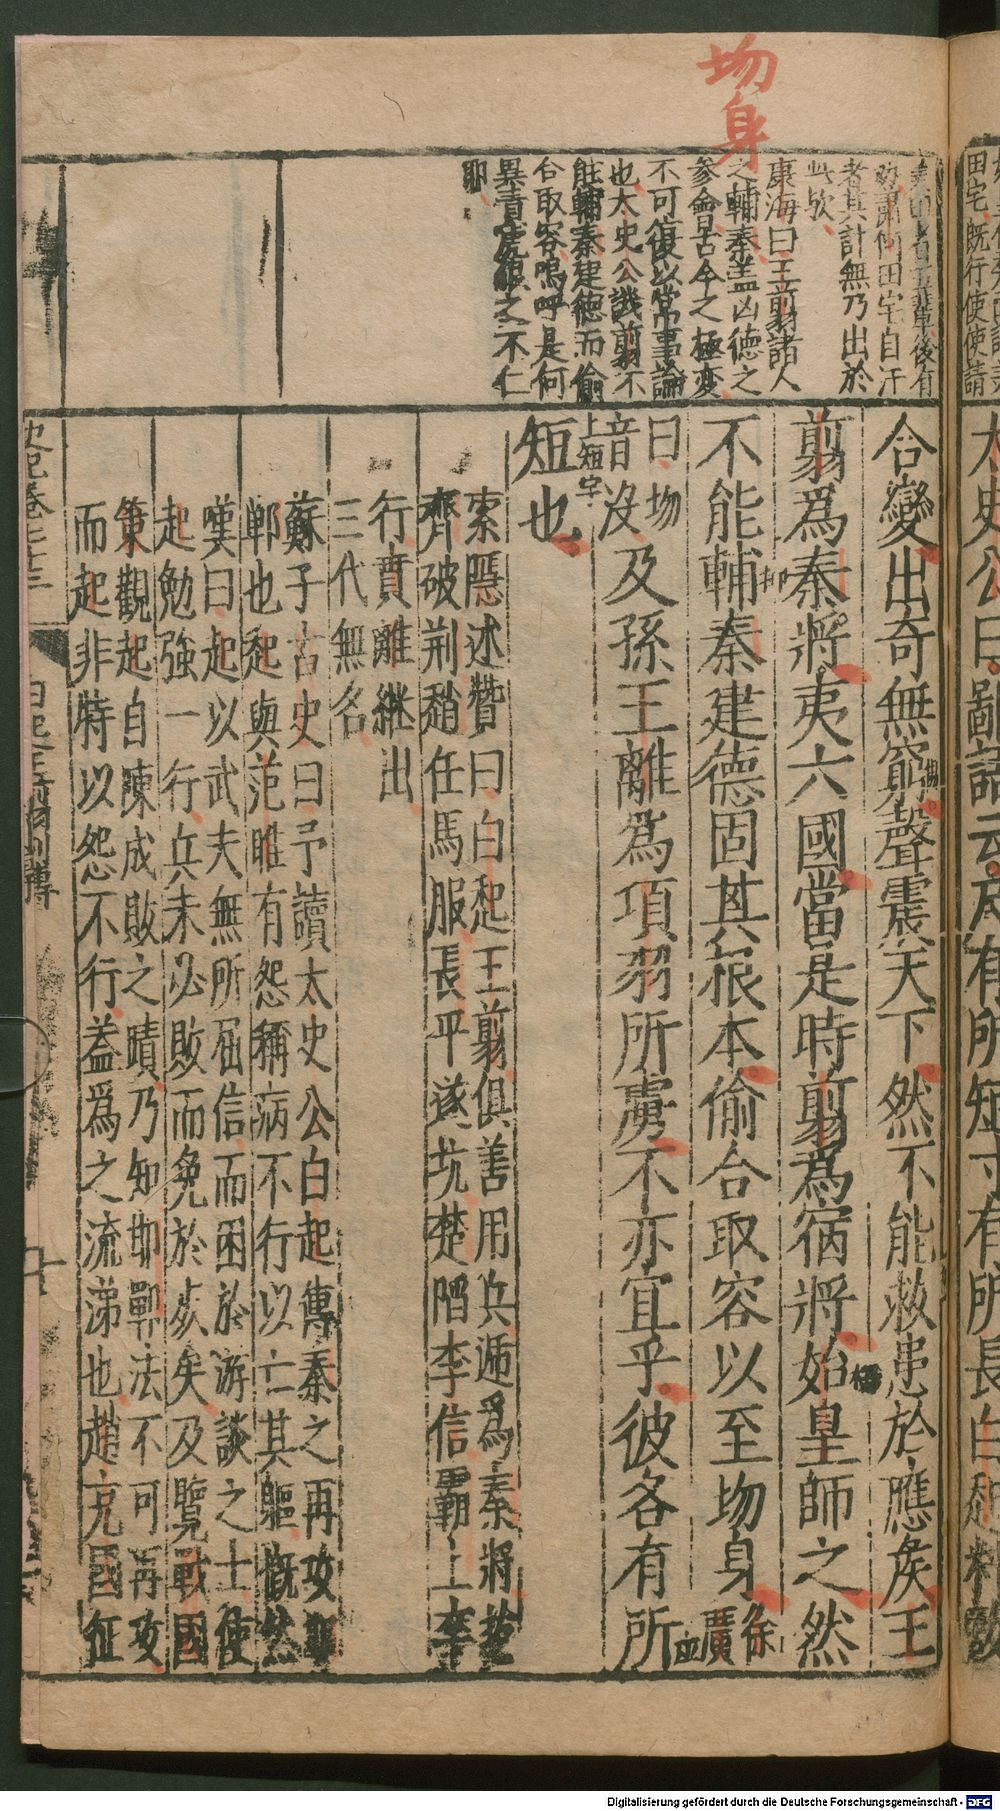 場身
勿身
者其計無乃出於
此歟
康海曰王翦諸人
之輔秦蓋凶德之
參會古今之極变
不可復以常事論
也太史公譏翦不
能輔秦建德而偷
合取容嗚呼是何
異責虎狼之不仁
耶
田宅既行使使請
太史公曰鄙語云尺有所短寸有所長白起料敵
合變出奇無窮聲震天下然不能救患於應侯王
翦爲秦將夷六國當是時翦爲宿將始皇師之然
不能輔秦建德固其根本偷合取容以至圽身徐廣
曰圽
音沒及孫王離爲項羽所虜不亦宜乎彼各有所
上短字
短也
索隱述贊曰白起王翦俱善用兵遞爲秦將拔
齊破荆趙任馬服長平遂坑楚陷李信霸上李
行賁離繼出
三代無名
蘇子古史曰予讀太史公白起傳秦之再攻邯
鄲也起與范睢有怨稱病不行以亡其軀慨然
嘆曰起以武夫無所屈信而困於游談之士使
起勉強一行兵未必敗而免於死矣及覽戰國
策觀起自陳成敗之蹟乃知邯鄲法不可再攻
而起非特以怨不行蓋爲之流涕也趙充國征
史記卷七十三
白起王翦列傳
十
Digitalisierung gefördert durch die Deutsche Forschungsgemeinschaft - DFG